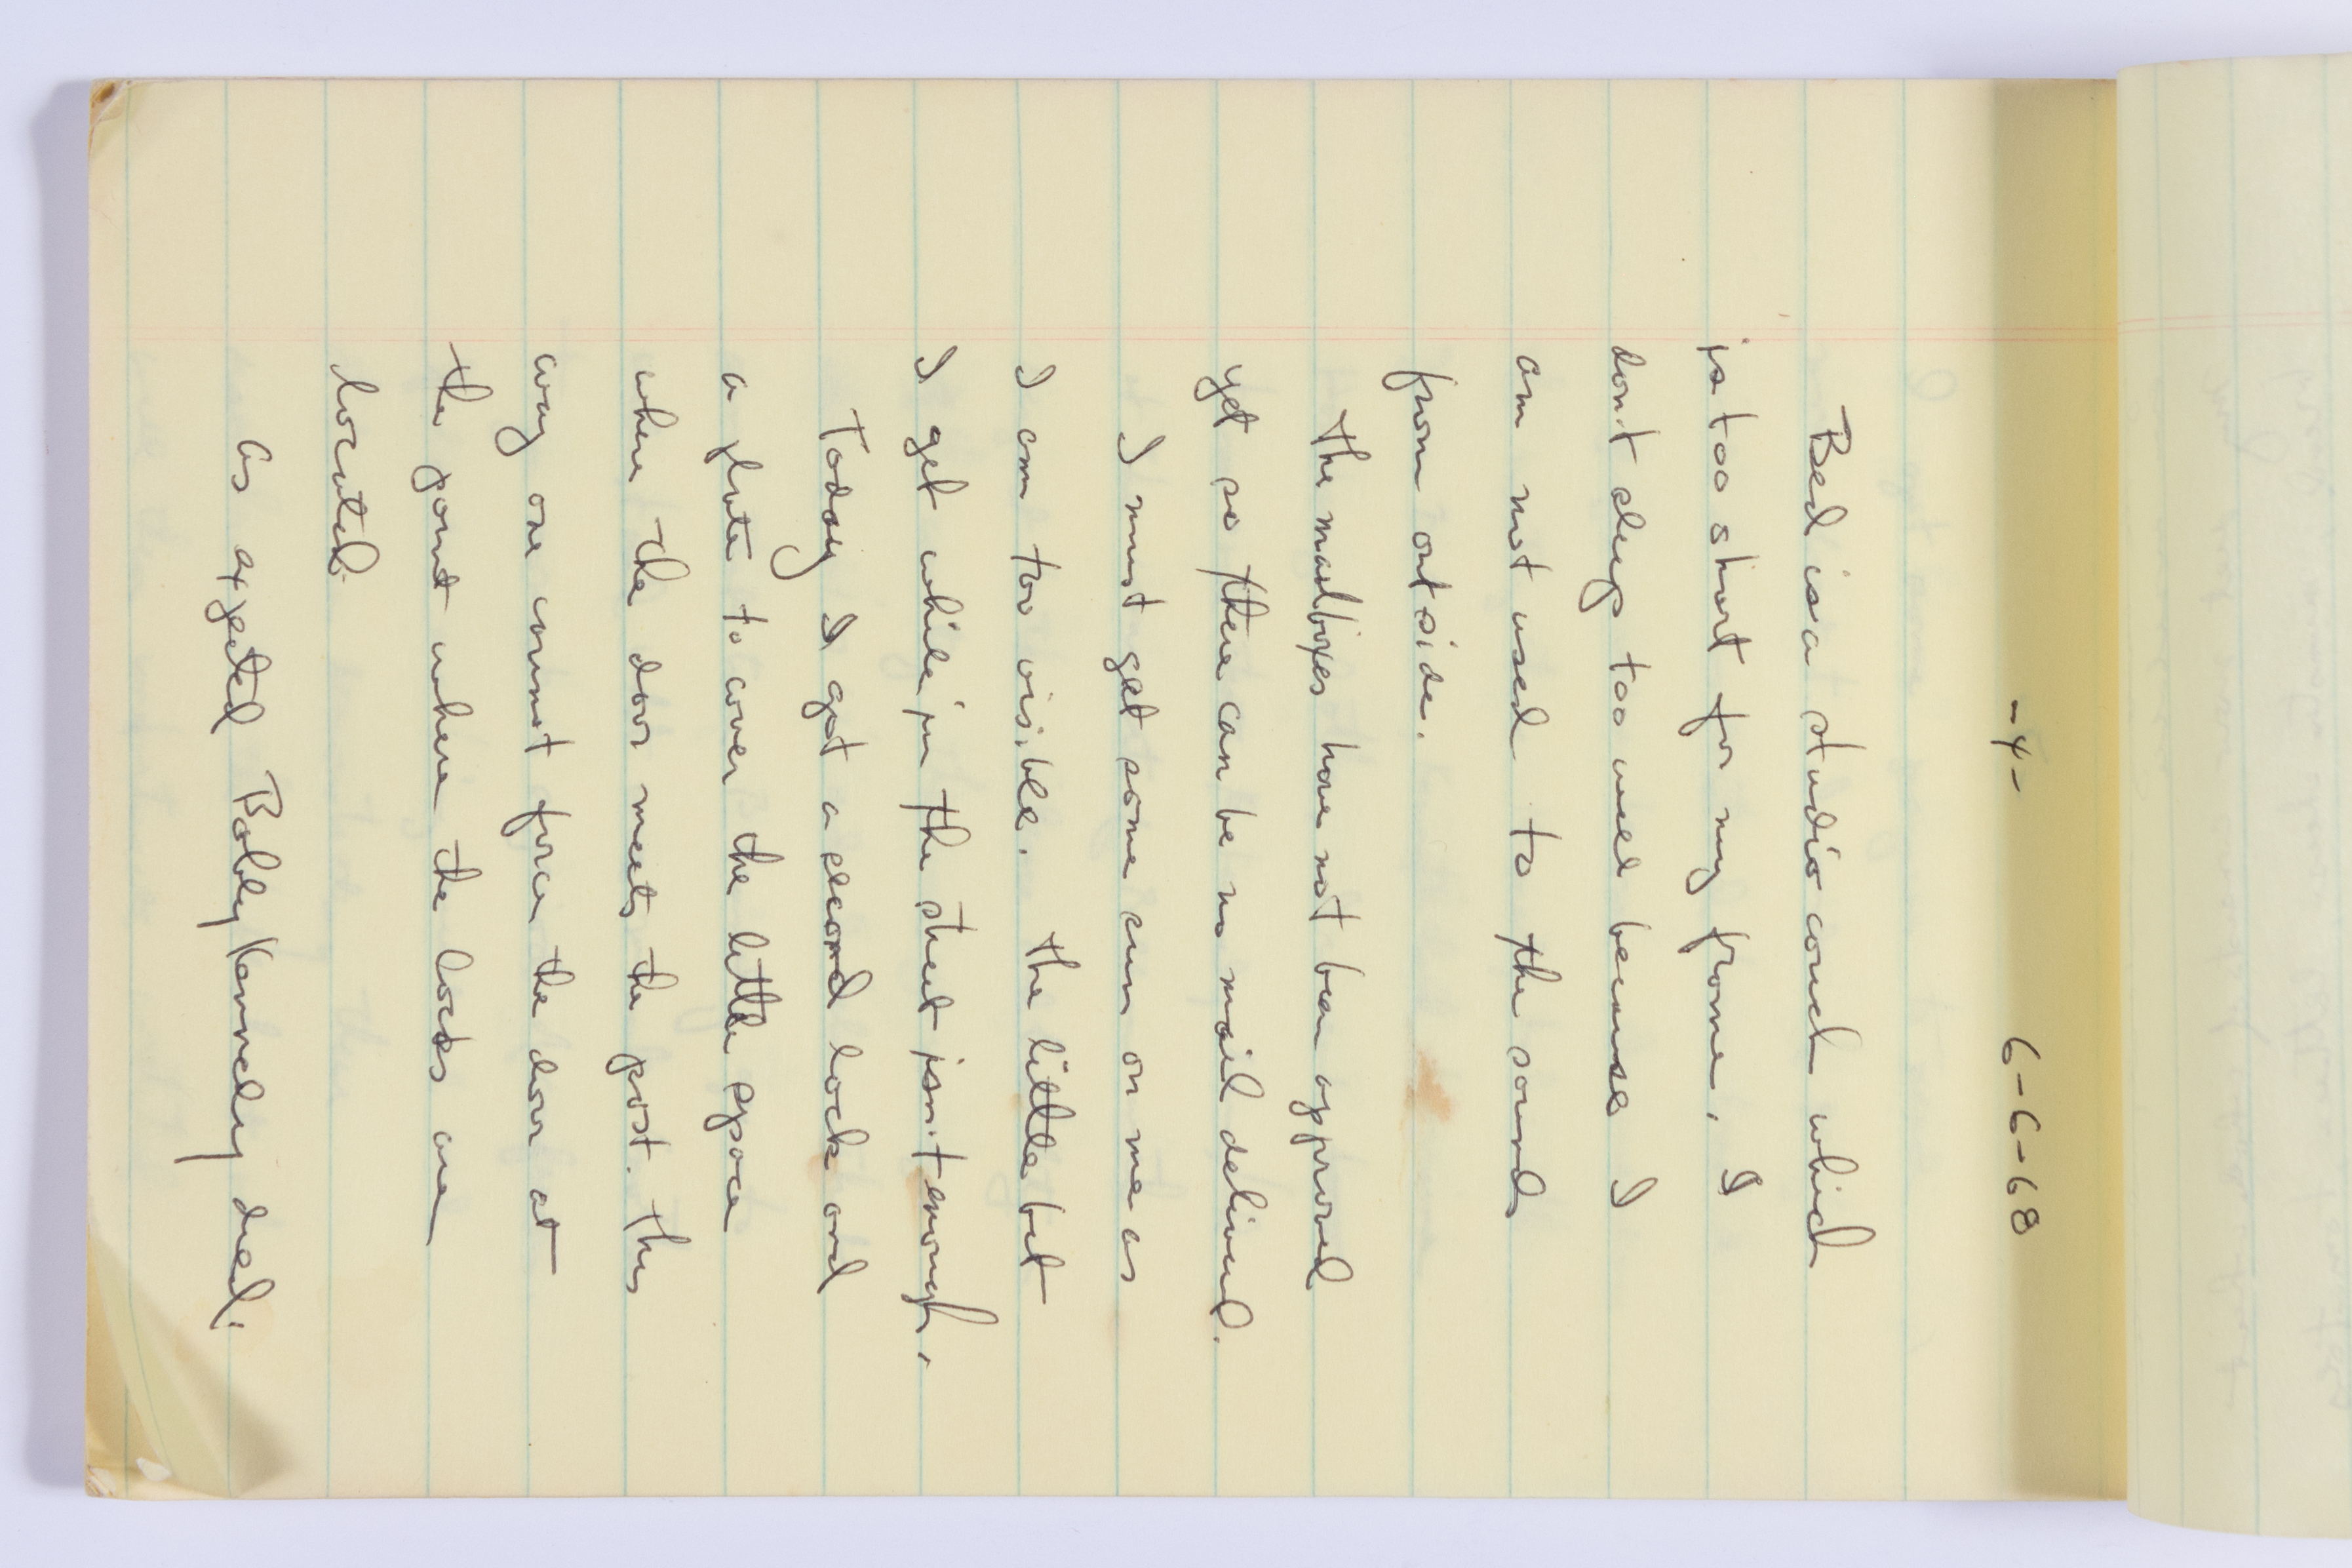 -4- 6-6-68
Bed is a studio couch which
is too short for my frame. I
don't sleep too well because I
am not used to the sounds
from outside.
The mailboxes have not been approved
yet so there can be no mail delivered.
I must get some sun on me as
I am too visible. The little bit
I get while in the street isn't enough.
Today I got a second lock and
a plate to cover the little space
where the door meets the post. This
way one cannot force the door at
the point where the locks are
located.
As expected Bobby Kennedy died.